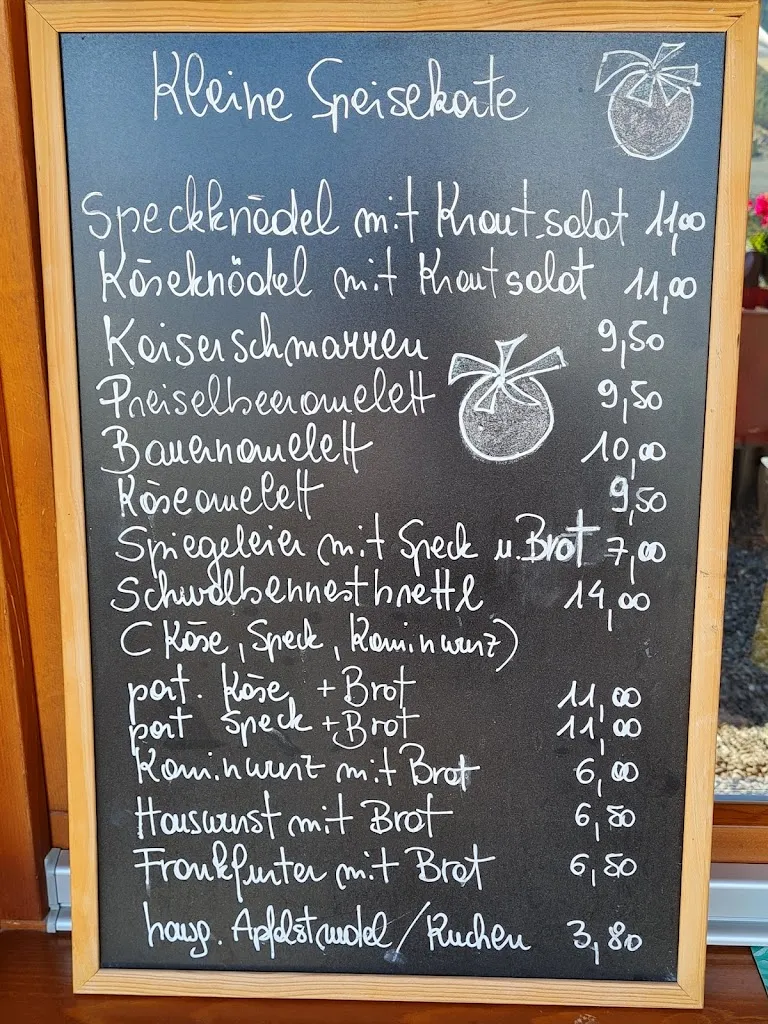 Kleine Speisekarte
Speckknödel mit Krautsalat 11,00
Käseknödel mit Krautsalat 11,00
Kaiserschmarren 9,50
Preiselbeeromelett 9,50
Bauernomelett 10,00
Käseomelett 9,50
Spiegeleier mit Speck u. Brot 7,00
Schwalbennestbrettl 14,00
(Käse, Speck, Kaminwurz)
port. Käse + Brot 11,00
port Speck + Brot 11,00
Kaminwurz mit Brot 6,00
Hauswurst mit Brot 6,50
Frankfurter mit Brot 6,50
hausg. Apfelstrudel / Kuchen 3,80